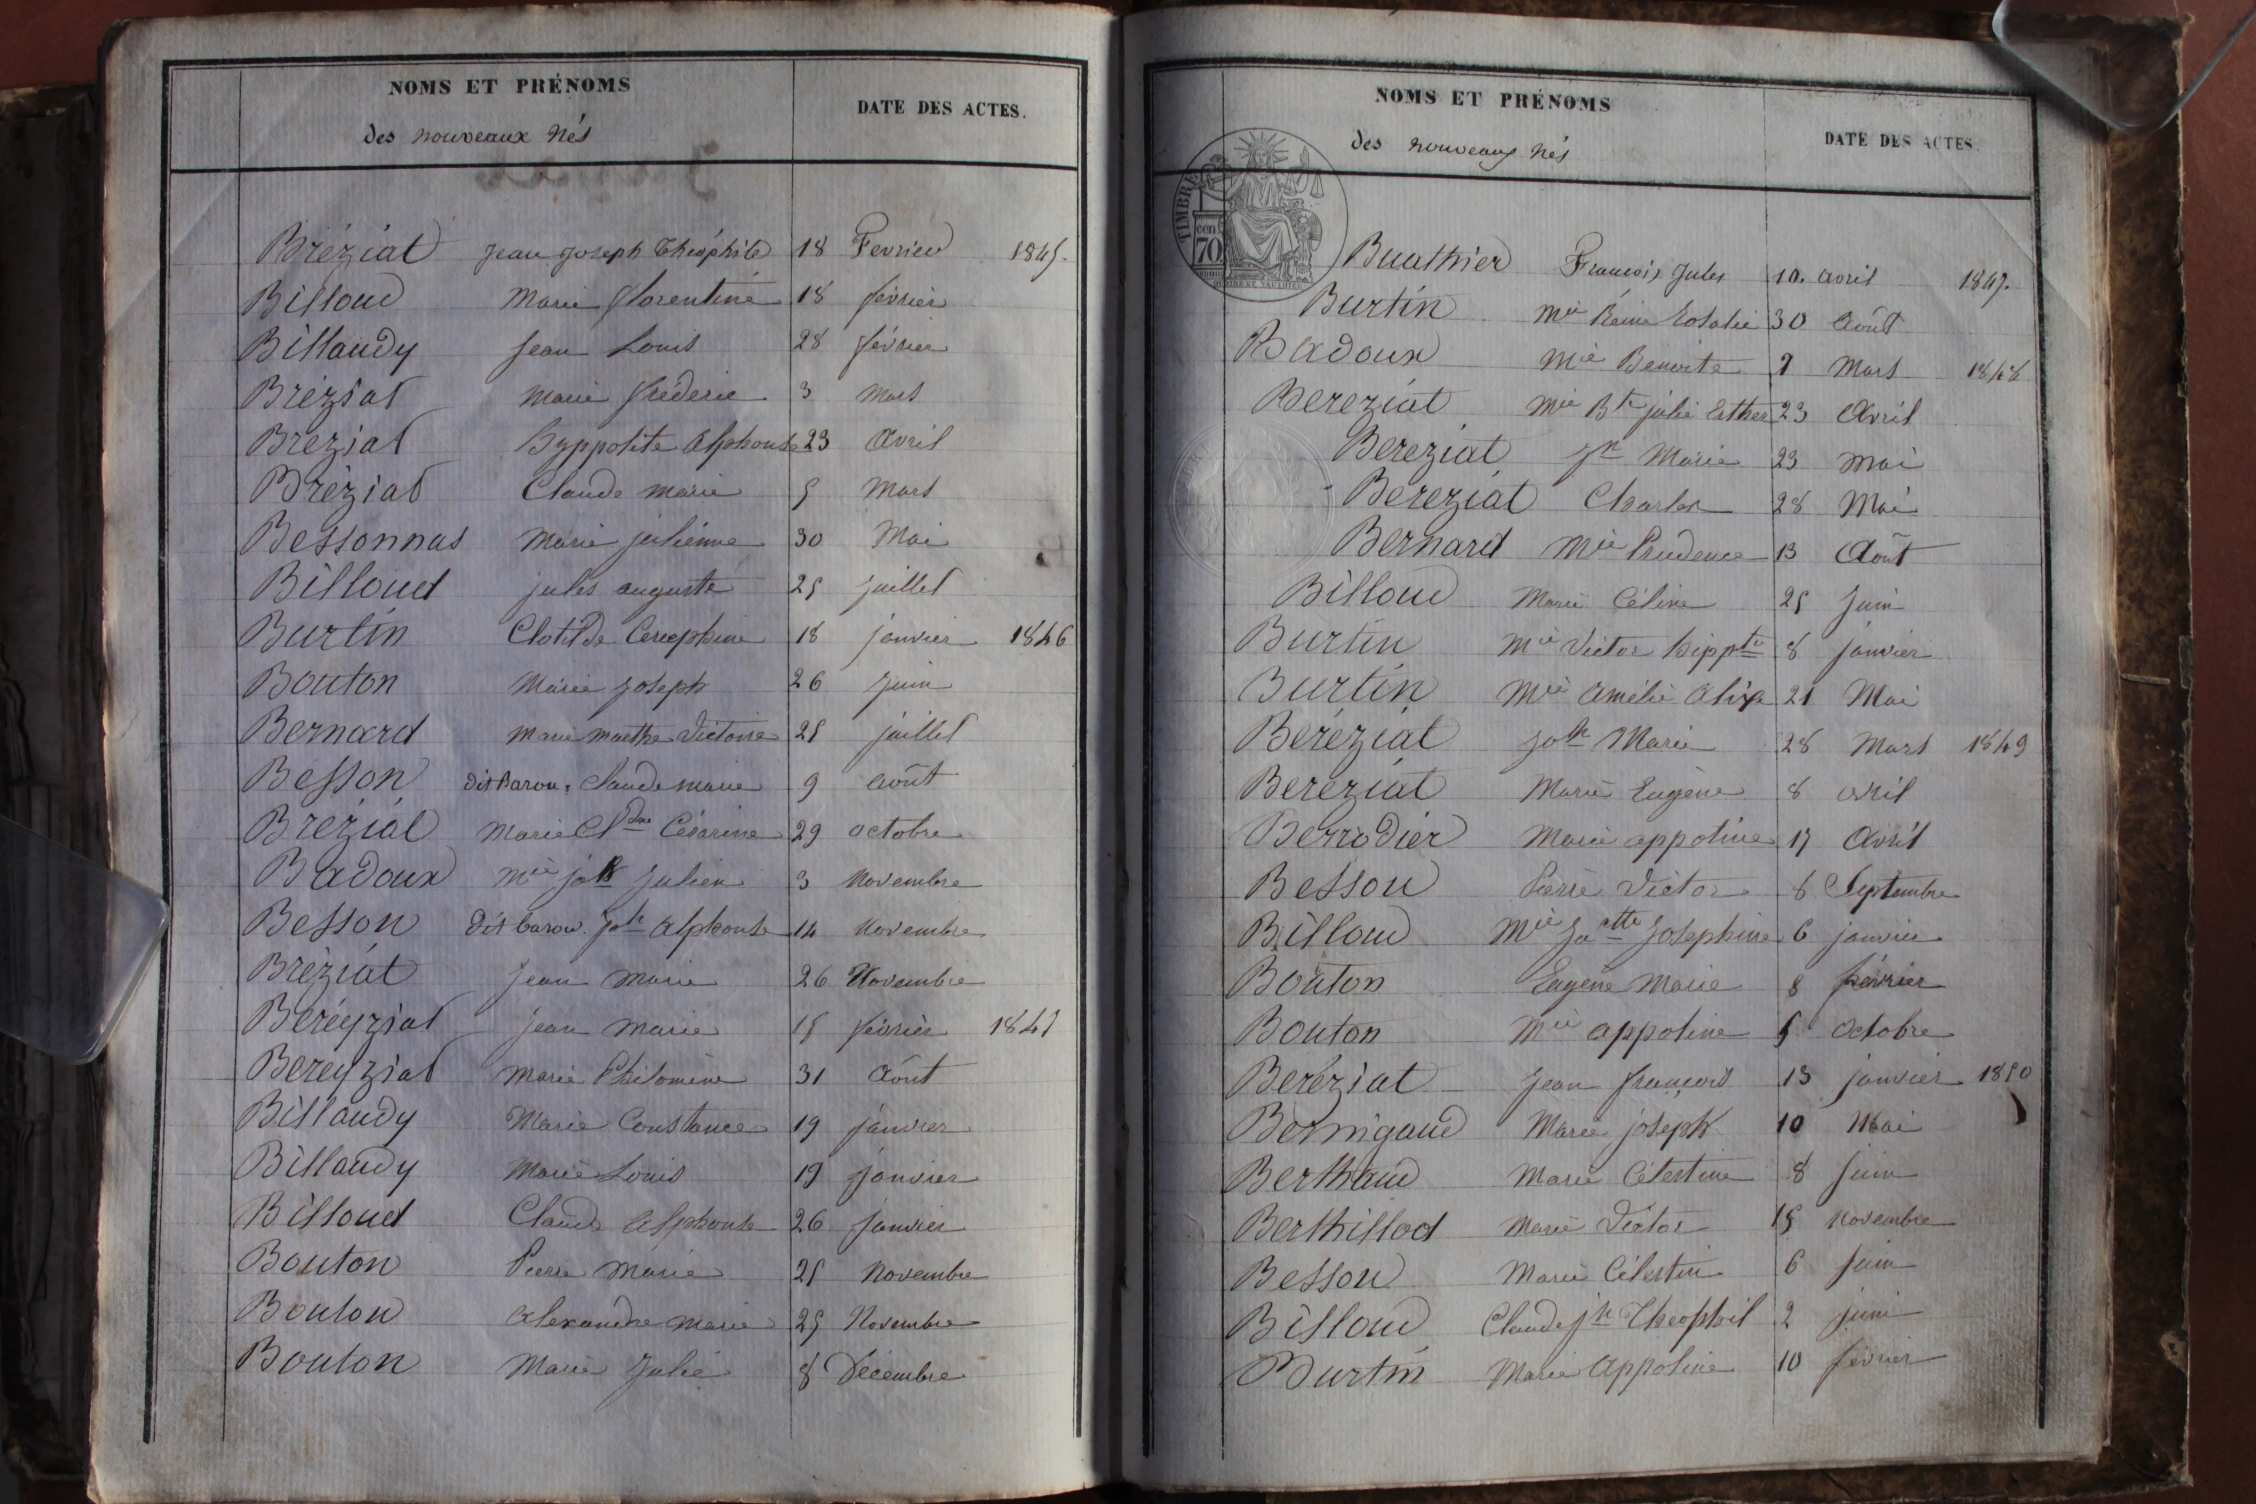 NOMS ET PRÉNOMS
des nouveaux Nés
DATE DES ACTES.
Bréziat Jean Joseph Théophile 18 Fevrier 1845.
Billoud Marie florentine 18 février
Billaudy Jean Louis 28 février
Bréziat Marie fréderic 3 Mars
Breziat hyppolite Alphonse 23 Avril
Breziat Claude Marie 5 Mars
Bessonnas Marie julienne 30 Mai
Billoud jules auguste 25 juillet
Burtin Clotilde 18 janvier 1846
Bouton Marie joseph 26 juin
Bernard Marie marthe Victoire 25 juillet
Besson dit Baron, Claude marie 9 août
Bréziat Marie Cldne Césarine 29 octobre
Badoux Mie jph Julien 3 Novembre
Besson dit baron. jph alphonse 14 Novembre
Bréziat Jean Marie 26 Novembre
Beréyziat jean Marie 15 février 1847
Bereyziat Marie Philomène 31 Août
Billaudy Marie Constance 19 janvier
Billaudy Marie Louis 19 janvier
Billoud Claude Alphonse 26 janvier
Bouton Pierre Marie 25 Novembre
Bouton Alexandre Marie 25 Novembre
Bouton Marie Julie 8 Décembre
NOMS ET PRÉNOMS
des nouveaux Nés
DATE DES ACTES.
TIMBRE
cen
70
Buathier François Jules 10. avril 1847.
Burtin Mie Reine 30 Août
Badoux Mie Benoite 9 Mars 1848
Bereziat Mie Bte julie Esther 23 Avril
Bereziat Jn Marie 23 Mai
Bereziat Charles 28 Mai
Bernard Mie Prudence 13 Août
Billoud Marie Céline 25 Juin
Burtin Mie Victor hippte 8 janvier
Burtin Mie Amélie Alix 21 Mai
Beréziat joph Marie 28 Mars 1849
Beréziat Marie Eugène 8 avril
Berrodier Marie appoline 17 Avril
Besson Pierre Victor 8 Septembre
Billoud Mie Jatte Josephine 6 janvier
Bouton Eugène Marie 8 février
Bouton Mie appoline 5 Octobre
Beréziat Jean françois 13 janvier 1850
Bornigaud Marie joseph 10 Mai
Berthaud Marie Célestine 8 Juin
Berthillod Marie Victor 15 Novembre
Besson Marie Célestin 6 Juin
Billoud Claude jh Theophil 2 juin
Burtin Marie Appoline 10 février